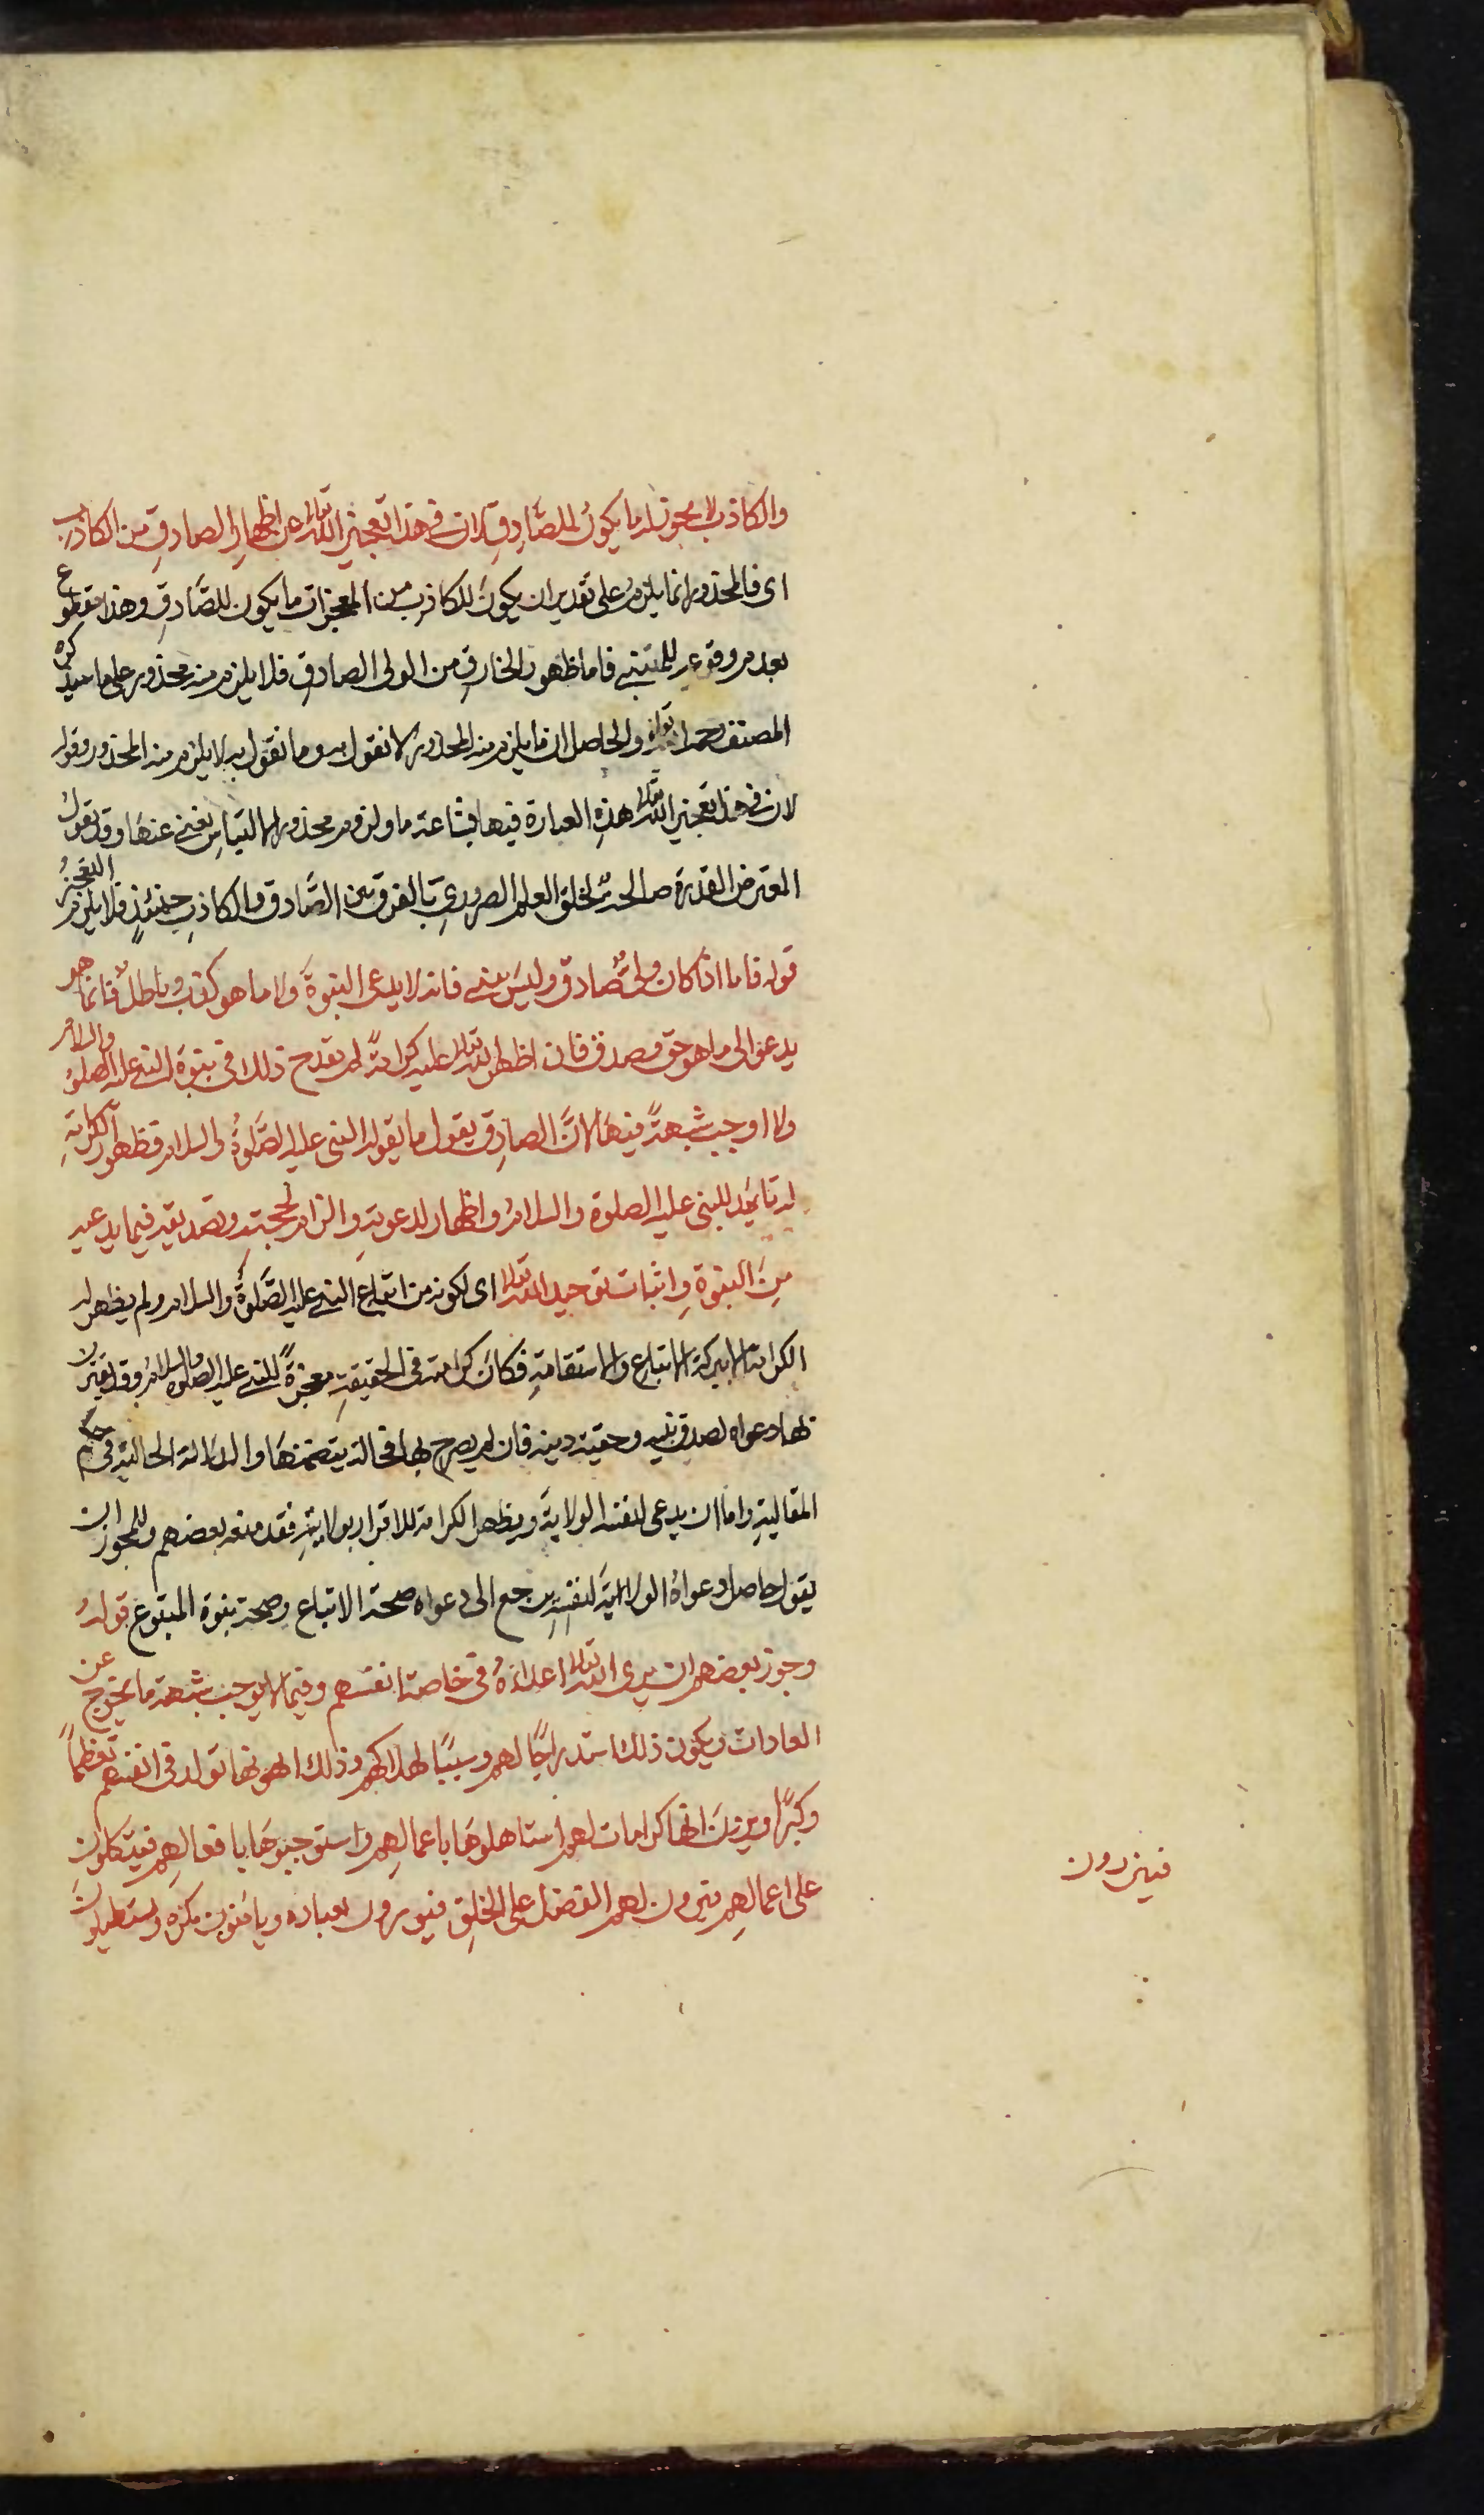 والكاذب لا يجوز له ما يكون للصّادِقِ لان في هذا تعجيز الله تعالى عن اظهارِ الصادقِ من الكاذب
اى فالمحذور انما يلزمُ على تقدير ان يكونَ للكاذب من المعجزات ما يكون للصَّادقِ وهذا مقطوع
بعدم وقوعه للمتنبي فاما ظهور الخارقِ من الولى الصادقِ فلا يلزم منه محذور على ما سيذكره
المصنف رحمه الله تعالى والحاصل ان ما يلزم منه المحذور لا نقول به وما نقول به لا يلزم منه المحذور وقوله
لان في هذا تعجيز الله تعالى هذِهِ العبارة فيها بشاعة ما ولزوم محذور الالتباسِ يغنى عنهَا وقد يقولُ
المعترض القدرة صالحة لخلق العلم الضرورىِ بالفرق بين الصَّادق والكاذبِ حينئذٍ فلا يلزم التعجيزُ
قوله فاما اذا كان ولىٌّ صادق وليسَ بنبي فانه لا يدعى النبوةَ ولا ما هو كذب وباطلٌ فانما هو
يدعوا الى ما هو حق وصدق فان اظهر الله تعالى عليه كرامةً لم يقدح ذلك في نبوة النبي عليه الصلوةُ والسلام
ولا اوجب شبهةً فيهَا لانَّ الصادِق يقول ما يقوله النبى عليه الصَّلوةُ والسلام فظهور الكرامةِ
له تاييد للنبى عليه الصلوة والسلامُ واظهار لدعوتِهِ والزام لحجته وتصديقه فيما يدعيه
مِنَ النبوةِ واثبات توحيد الله تعالى اى لكونه من اتباع النبي عليه الصَّلوةُ والسلام ولم يظهر له
الكرامة الا ببركة الاتباع والاستقامةِ فكانَ كرامته في الحقيقةِ معجزةً للنبي عليه الصلوة والسلامُ وقد يقترن
بها دعواه لصدق نبيه وحقية دينه فان لم يصرح بها فحاله يتضمنهَا والدلالة الحالية في حكم
المقاليةِ واما ان يدعى لنفسه الولايةَ ويظهر الكرامة للاقرار بولايتِهِ فقد منعه بعضهم وللمجوز ان
يقول حاصل دعواهُ الولايَة لنفسِهِ يرجع الى دعواه صحة الاتباع وصحة نبوة المتبوع قوله
وجوز بعضهم ان يرى الله تعالى اعداءهُ في خاصة انفسهم وفيما لا يوجب شبهة ما يخرج عن
العادات ويكون ذلك استدراجًا لهم وسببًا لهلاكهم وذلك انهو نها تولد في انفسهم تعظماً
وكبرًا ويرونَ انها كرامات لهم استاهلوهَا باعمالهِم واستوجبوهَا بافعالهِم فيتكلون
على اعمالهِم ويرون لهم الفضل على الخلقِ فيزدرون بعباده ويامنون مكره ويستطيلون
فيزدرون